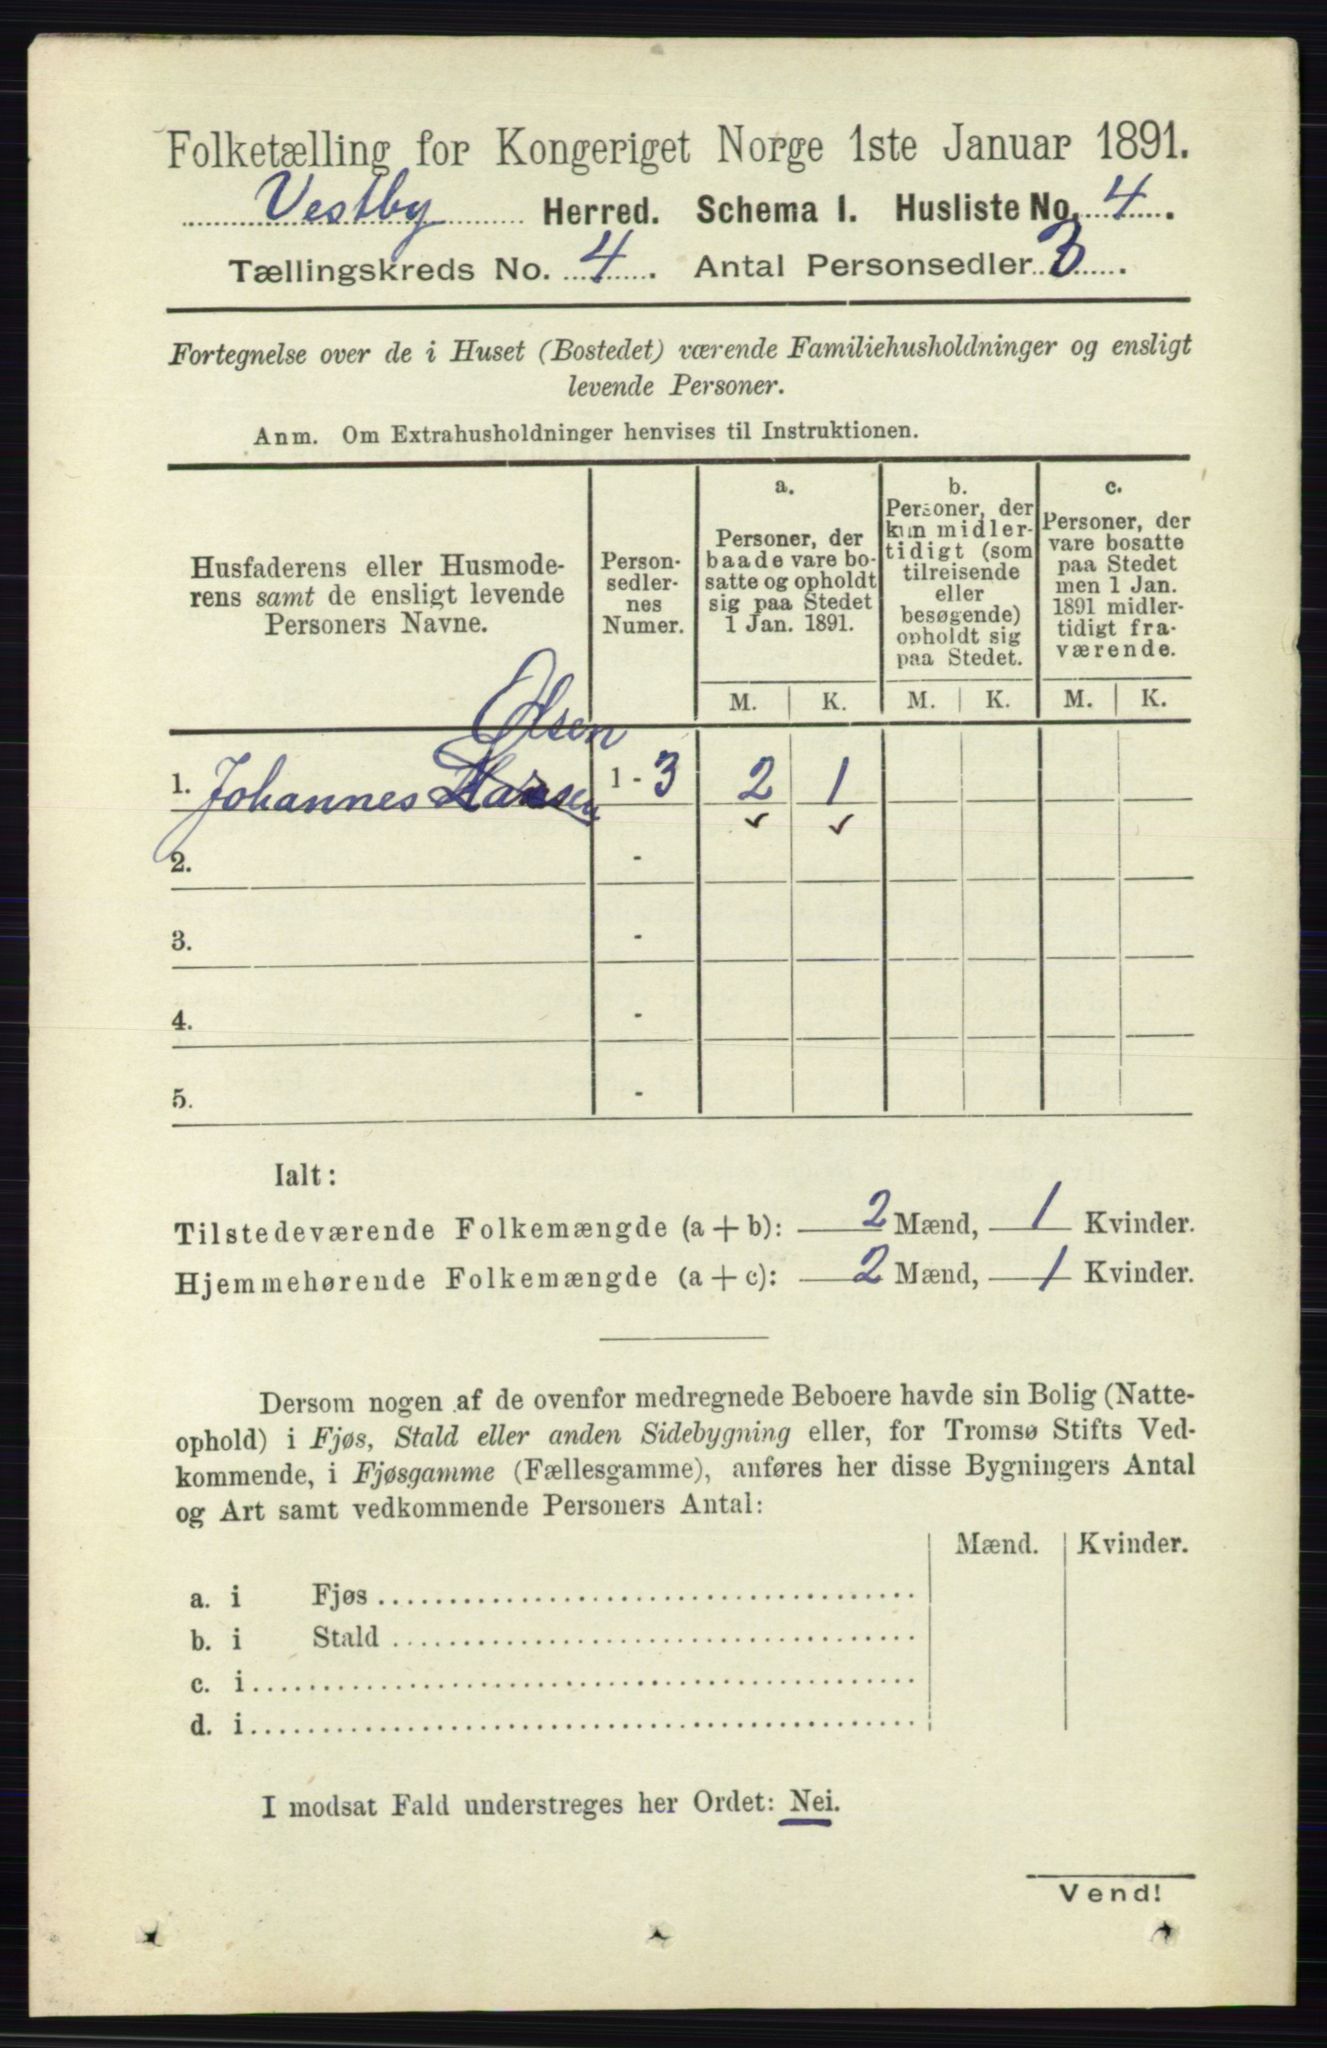 Folketælling for Kongeriget Norge 1ste Januar 1891.
Vestby Herred. Schema I. Husliste No. 4.
Tællingskreds No. 4. Antal Personsedler 3.
Fortegnelse over de i Huset (Bostedet) værende Familiehusholdninger og ensligt
levende Personer.
Anm. Om Extrahusholdninger henvises til Instruktionen.
Husfaderens eller Husmode-
rens samt de ensligt levende
Personers Navne.
Person-
sedler-
nes
Numer.
a.
Personer, der
baade vare bo-
satte og opholdt
sig paa Stedet
1 Jan. 1891.
b.
Personer, der
kun midler-
tidigt (som
tilreisende
eller
besøgende)
opholdt sig
paa Stedet.
c.
Personer, der
vare bosatte
paa Stedet
men 1 Jan.
1891 midler-
tidigt fra-
værende.
M. K. M. K. M. K.
Olsen
1. Johannes Hansen 1 - 3 2 1
2. -
3. -
4. -
5. -
Ialt:
Tilstedeværende Folkemængde (a + b): 2 Mænd, 1 Kvinder.
Hjemmehørende Folkemængde (a + c): 2 Mænd, 1 Kvinder.
Dersom nogen af de ovenfor medregnede Beboere havde sin Bolig (Natte-
ophold) i Fjøs, Stald eller anden Sidebygning eller, for Tromsø Stifts Ved-
kommende, i Fjøsgamme (Fællesgamme), anføres her disse Bygningers Antal
og Art samt vedkommende Personers Antal:
Mænd. Kvinder.
a. i Fjøs
b. i Stald
c. i
d. i
I modsat Fald understreges her Ordet: Nei.
Vend!